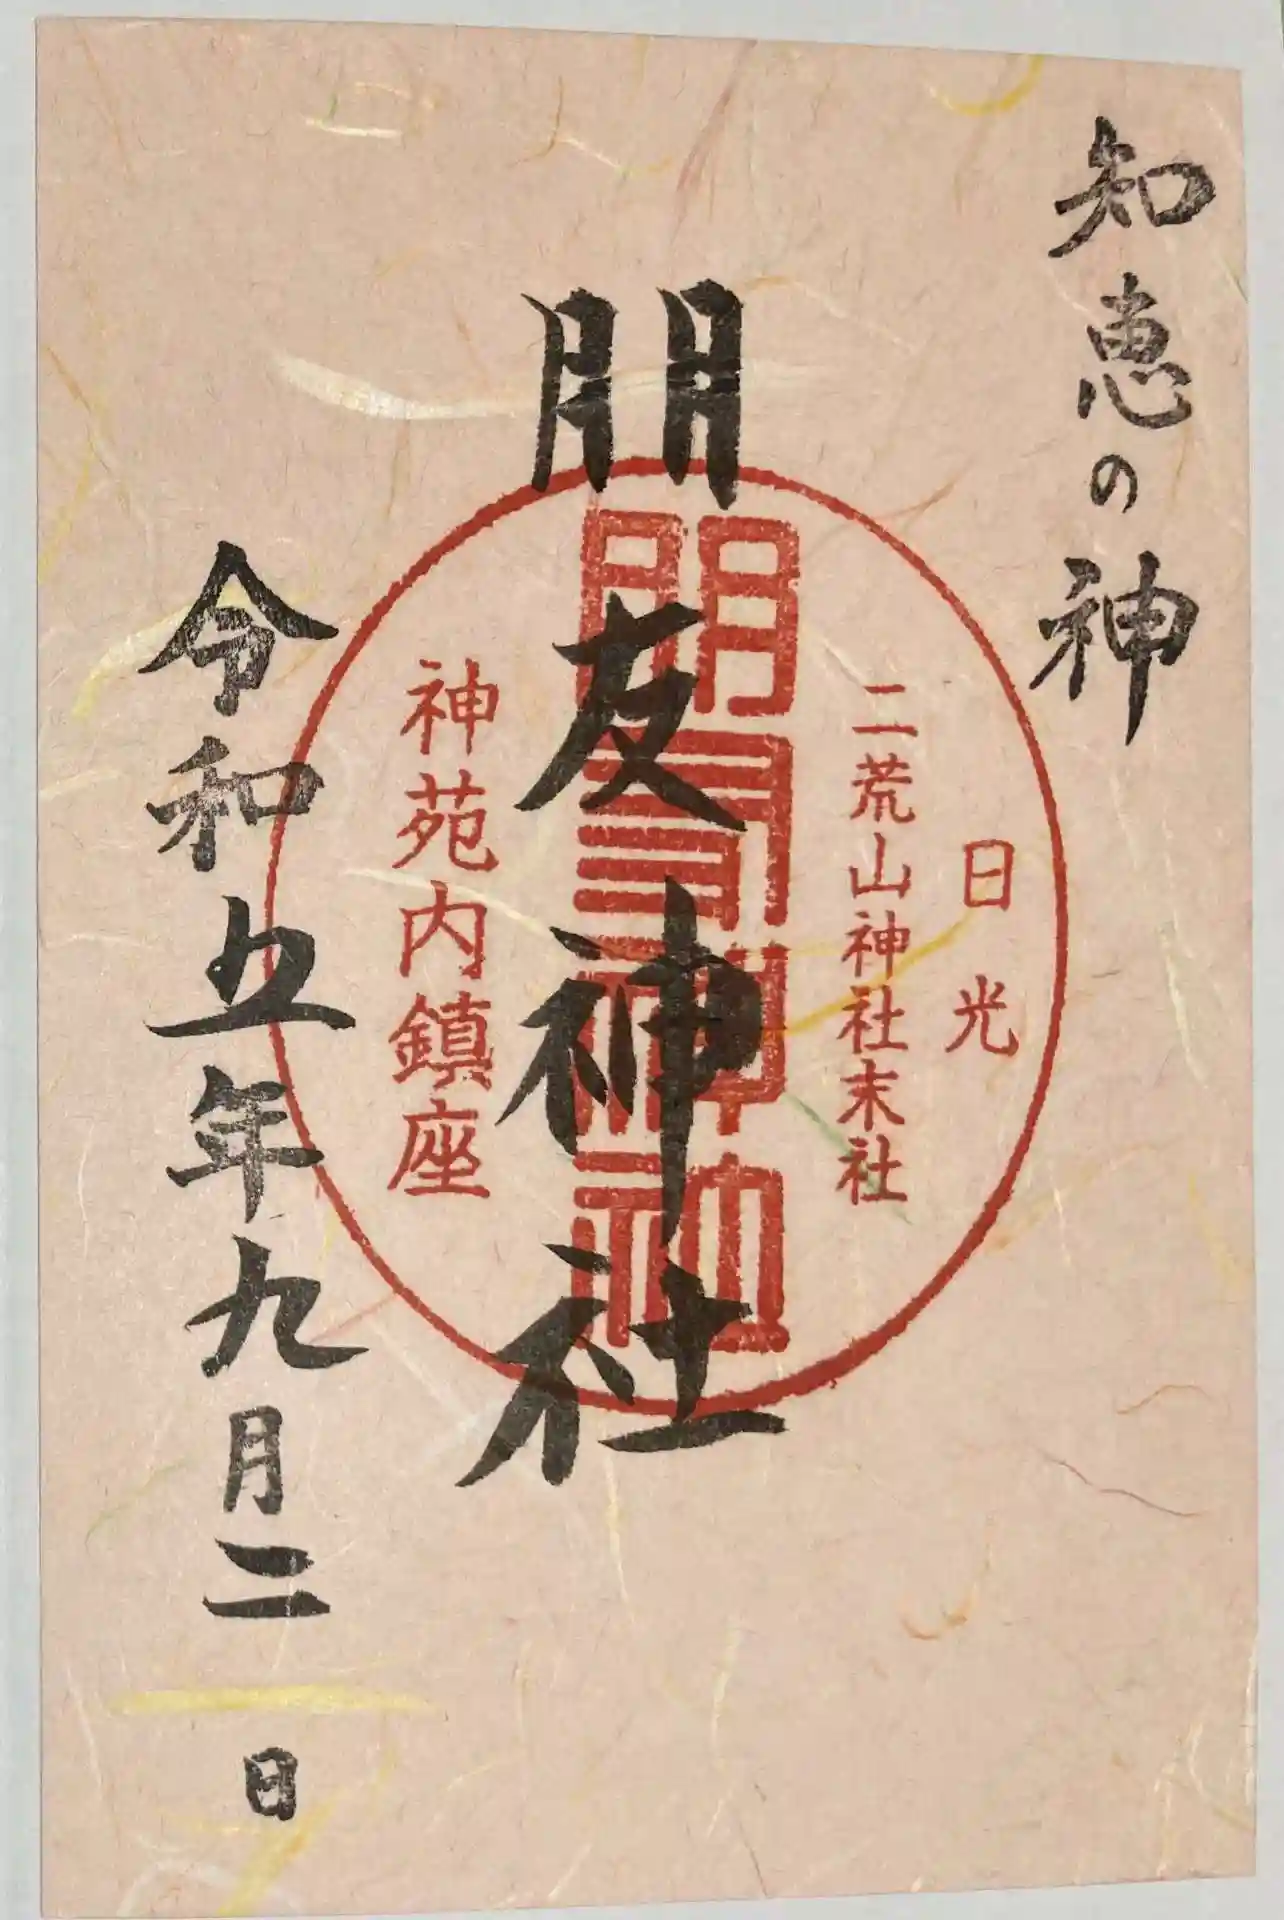 知恵の神
日光
二荒山神社末社
朋友神社
朋友神社
神苑内鎮座
令和五年九月二日